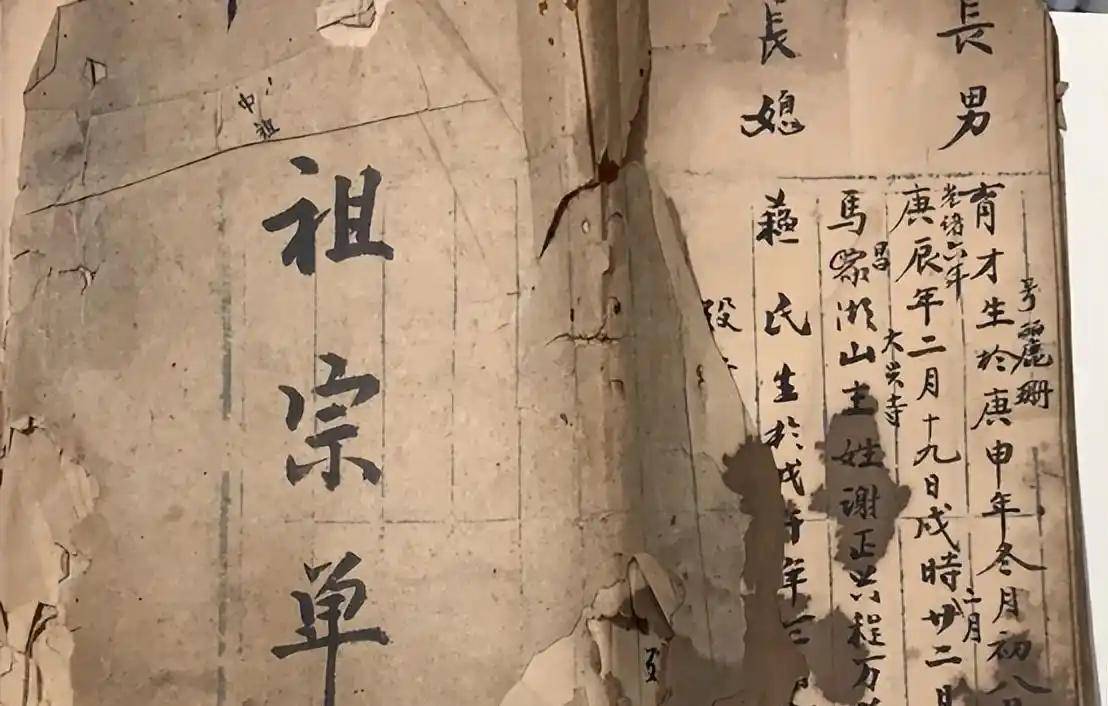 長男
育才生於庚申年冬月初八
号麗珊
光绪六年
庚辰年二月十九日戌時廿二日
二月
大兴寺
馬家湖山主姓谢正兴程万
昌
長媳
蘓氏生於戊年三
殁
中祖
祖宗单